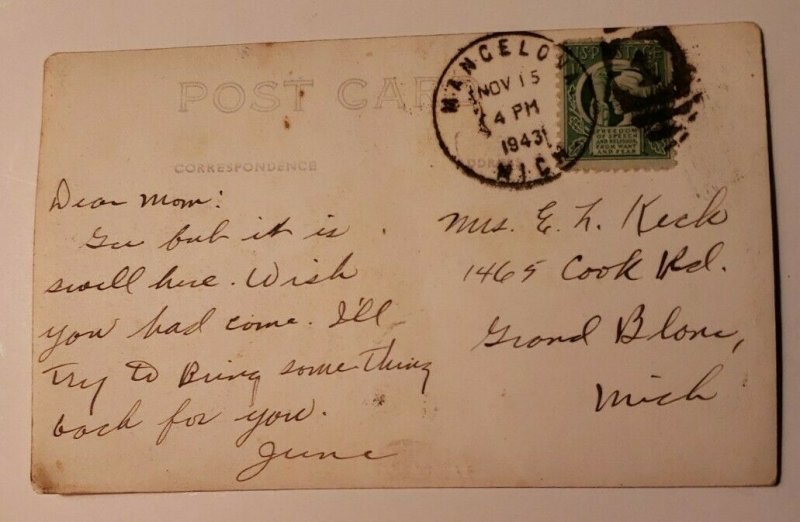 POST CARD
CORRESPONDENCE
ADDRESS
MANCELONA
NOV 15
4 PM
1943
MICH
U.S. POSTAGE
FREEDOM
OF SPEECH
AND RELIGION,
FROM WANT
AND FEAR
Dear Mom:
Gee but it is
swell here. Wish
you had come. I'll
try to Bring some thing
back for you.
June
Mrs. E. L. Keck
1465 Cook Rd.
Grand Blanc,
Mich